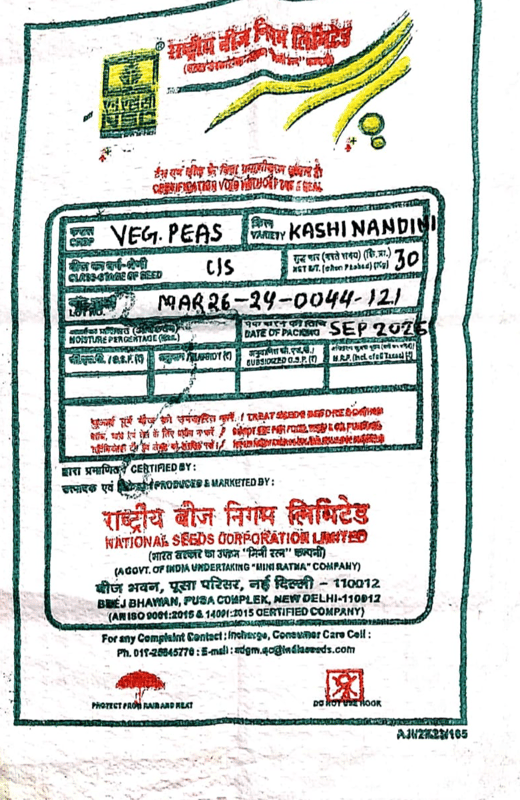 राष्ट्रीय बीज निगम लिमिटेड
एनएससी
NSC
CERTIFICATION VOID WITHOUT TAG & SEAL
फसल CROP VEG. PEAS
किस्म VARIETY KASHI NANDINI
बीज का वर्ग-श्रेणी CLASS-STAGE OF SEED C/S
NET WT. (when Packed) (Kg) 30
LOT NO. MAR26-24-0044-121
MOISTURE PERCENTAGE (Max.)
DATE OF PACKING SEP 2025
SUBSIDIZED O.S.P. (₹)
M.R.P. (Incl. of all Taxes) (₹)
TREAT SEEDS BEFORE SOWING
द्वारा प्रमाणित / CERTIFIED BY :
उत्पादक एवं / PRODUCED & MARKETED BY :
राष्ट्रीय बीज निगम लिमिटेड
NATIONAL SEEDS CORPORATION LIMITED
(भारत सरकार का उपक्रम "मिनी रत्न" कम्पनी)
(A GOVT. OF INDIA UNDERTAKING "MINI RATNA" COMPANY)
बीज भवन, पूसा परिसर, नई दिल्ली - 110012
BEEJ BHAWAN, PUSA COMPLEX, NEW DELHI-110012
(AN ISO 9001:2015 & 14001:2015 CERTIFIED COMPANY)
For any Complaint Contact : Incharge, Consumer Care Cell :
Ph. 011-25845770 : E-mail : sdgm.qc@indiaseeds.com
PROTECT FROM RAIN AND HEAT
DO NOT USE HOOK